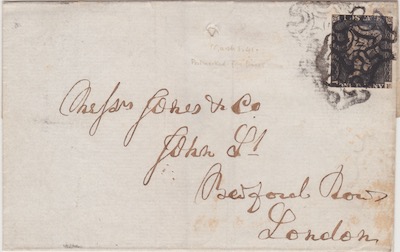 Messrs Jones & Co
John St
Bedford Row
London